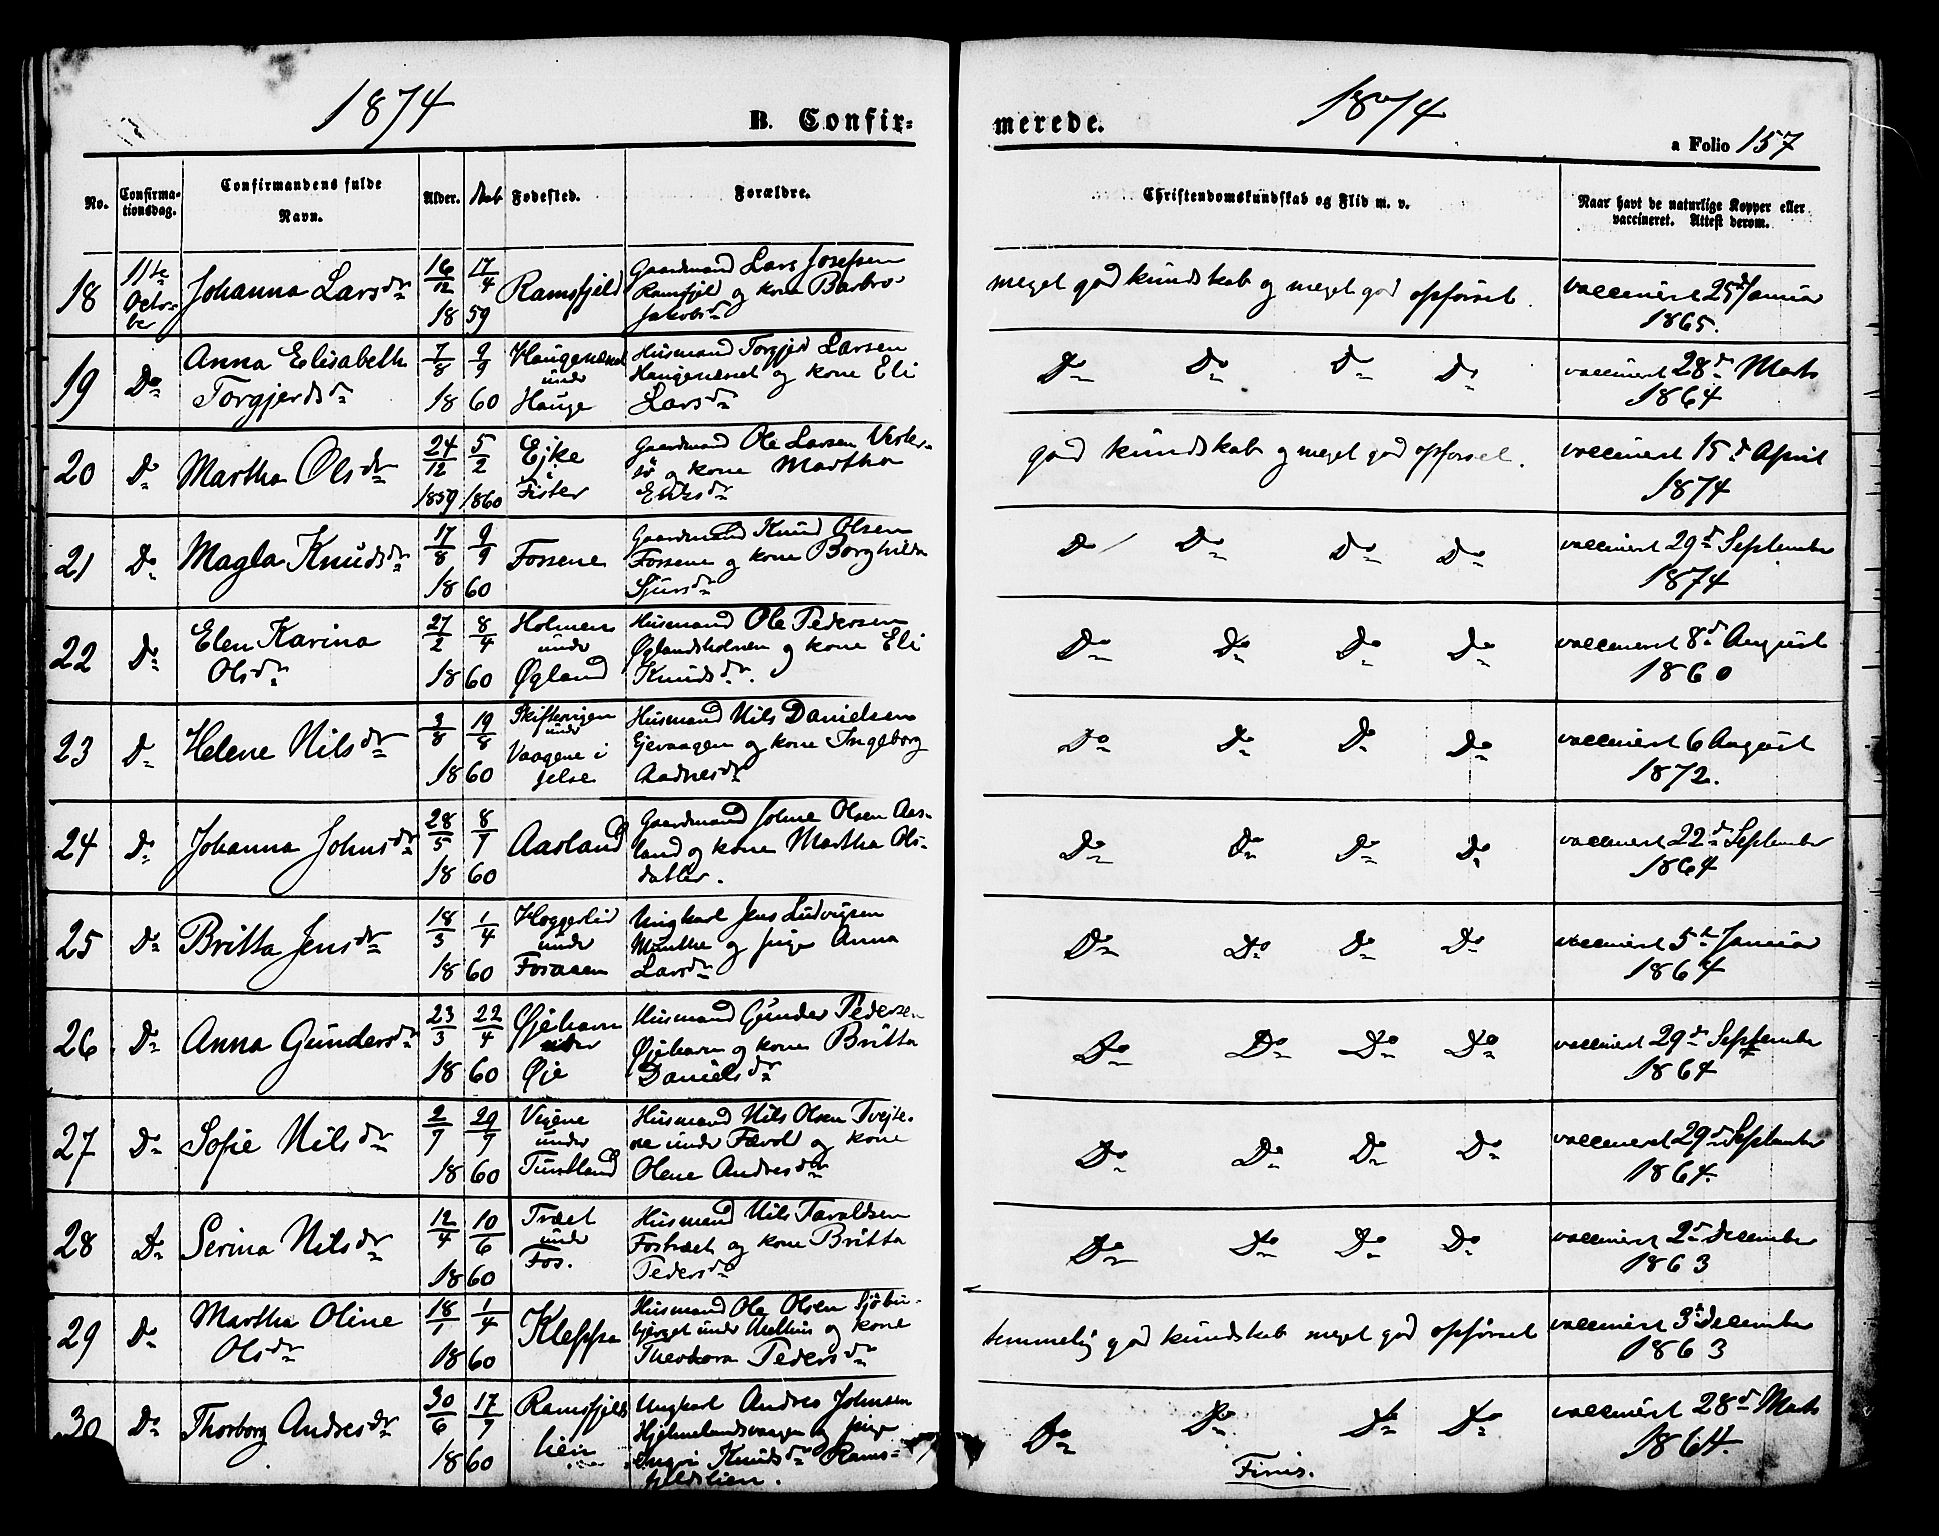 1874
B. Confir-
merede.
1874
a Folio 157
No.
Confirma-
tionsdag.
Confirmandens fulde
Navn.
Alder.
Daab
Fødested.
Forældre.
Christendomskundskab og Flid m. v.
Naar havt de naturlige Kopper eller
vaccineret. Attest derom.
18
11te
Octo-
ber
Johanna Larsdr
16/12 17/4
18 59
Ramsfjeld
Gaardmand Lars Josefsen
Ramsfjeld og kone Barbro
Jakobsdr
meget god kundskab og meget god opførsel.
vaccinert 25d Januar
1865.
19
Do
Anna Elisabeth
Torgjersdr
7/8 9/9
18 60
Haugenæset
under
Hauge
Husmand Torgjer Larsen
Haugenæset og kone Eli
Larsdr
Do Do Do Do
vaccinert 28d Marts
1864
20
Do
Martha Olsdr
24/12 5/2
1859 1860
Ejke
i
Fister
Gaardmand Ole Larsen Vester-
sø og kone Martha
Eriksdr
god kundskab og meget god opførsel.
vaccinert 15d April
1874
21
Do
Magla Knudsdr
17/8 9/9
18 60
Fossene
Gaardmand Knud Olsen
Fossene og kone Borghilda
Sjursdr
Do Do Do Do
vaccinert 29d September
1874
22
Do
Elen Karina
Olsdr
27/2 8/4
18 60
Holmen
under
Øgland
Husmand Ole Pedersen
Øglandsholmen og kone Eli
Knudsdr.
Do Do Do Do
vaccinert 8d August
1860
23
Do
Helene Nilsdr
3/8 19/8
18 60
under
Vaagene i
Jelse
Husmand Nils Danielsen
og kone Ingeborg
Aadnesdr
Do Do Do Do
vaccinert 6 August
1872.
24
Do
Johanna Johnsdr
28/5 8/7
18 60
Aasland
Gaardmand Johne Olsen Aas-
land og kone Martha Ols-
datter.
Do Do Do Do
vaccinert 22d September
1864
25
Do
Britta Jensdr
18/3 1/4
18 60
Heggerlid
under
Fosaaen
Ungkarl Jens Ludvigsen
Munthe og pige Anna
Larsdr
Do Do Do Do
vaccinert 5te Januar
1864
26
Do
Anna Gundersdr
23/3 22/4
18 60
Øjehavn
under
Øje
Husmand Gunder Pedersen
Øjehavn og kone Britta
Danielsdr
Do Do Do Do
vaccinert 29d September
1864
27
Do
Sofie Nilsdr
2/7 29/7
18 60
Vigene
under
Tuntland
Husmand Nils Olsen Tvejte-
ne under Fævold og kone
Olene Andresdr
Do Do Do Do
vaccineret 29d September
1864.
28
Do
Serina Nilsdr
12/4 10/6
18 60
Træet
under
Fos.
Husmand Nils Taraldsen
Fostræet og kone Britta
Pedersdr
Do Do Do Do
vaccinert 2d december
1863
29
Do
Martha Oline
Olsdr
18/1 1/4
18 60
Kleppa
Husmand Ole Olsen Sjøbu-
bjerget under og kone
Theodora Pedersdr
temmelig god kundskab meget god opførsel
vaccinert 3die december
1863
30
Do
Thorborg Andresdr
30/6 17/7
18 60
Ramsfjelds
lien
Ungkarl Andres Johnsen
Hjelmelandsvaagen og pige
Knudsdr Rams-
fjeldslien.
Do Do Do Do
Finis.
vaccinert 28d Marts
1864.